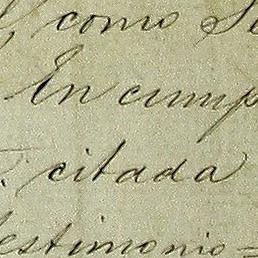 , como Se
En cump
citada
testimonio=